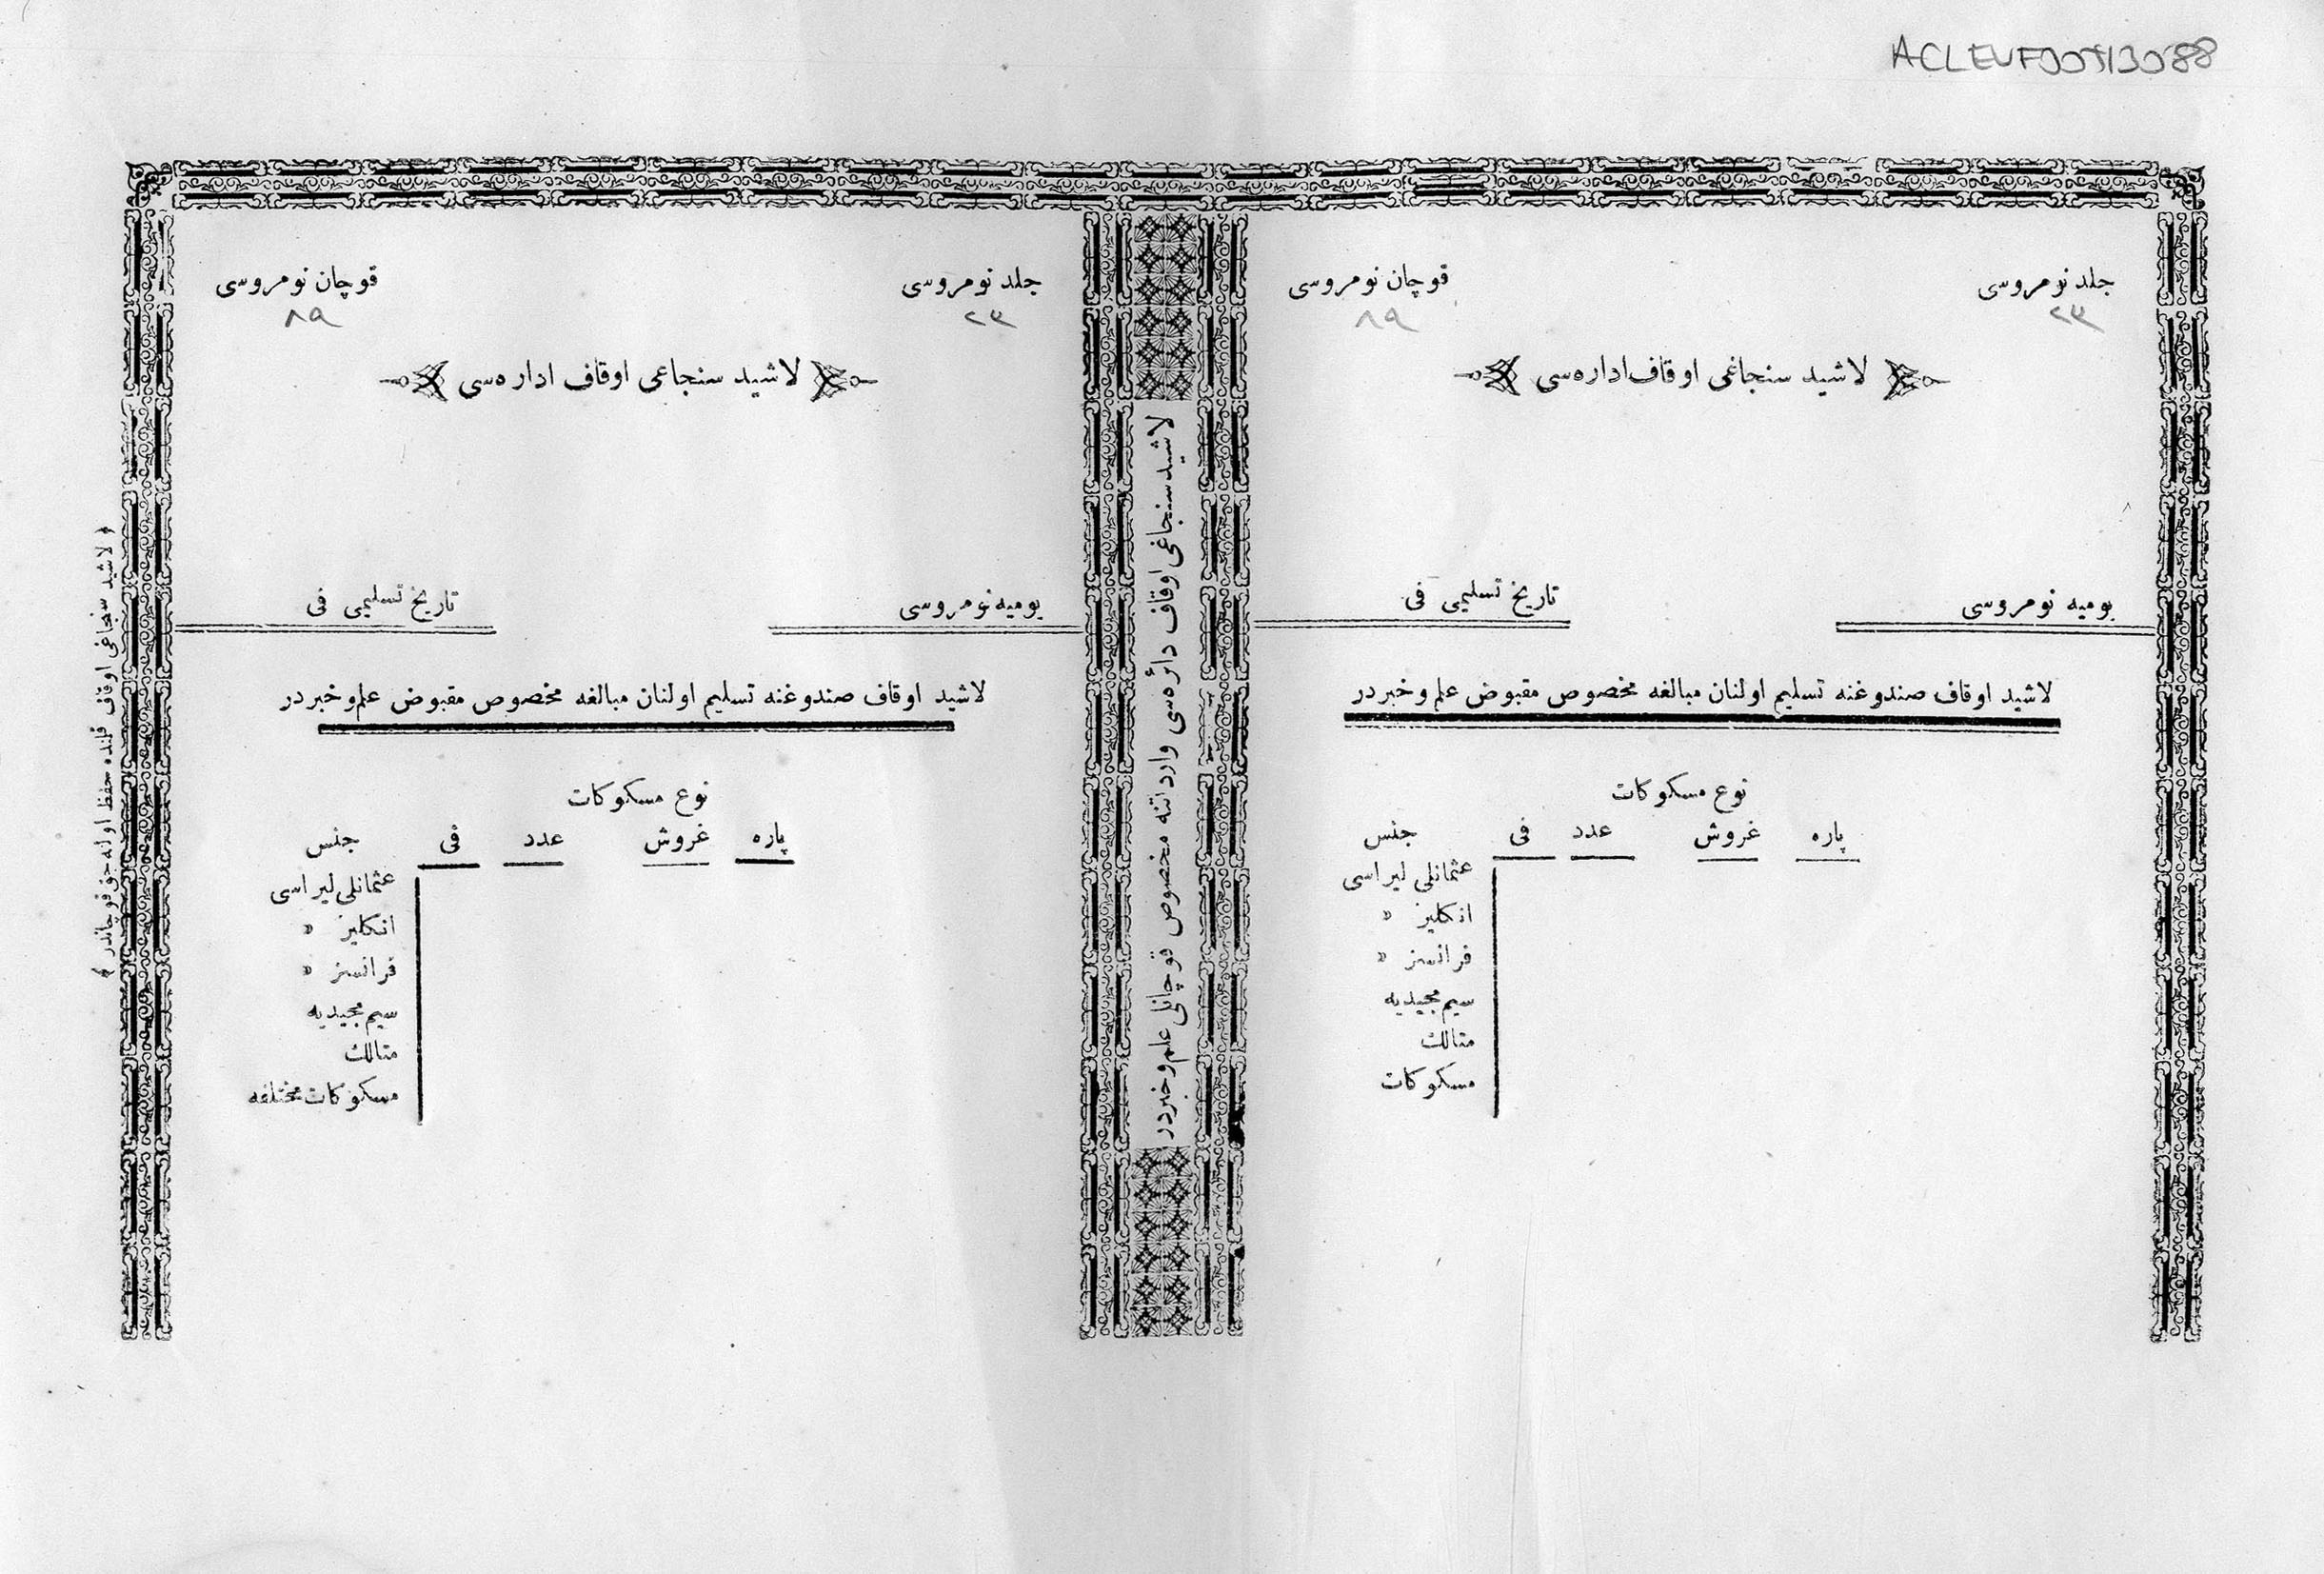 ACLEUF00513088
جلد نومروسی
٢٣
قوچان نومروسی
٨٩
لاشید سنجاغی اوقاف اداره‌سی
یومیه نومروسی
تاریخ تسلیمی فی
لاشید اوقاف صندوغنه تسلیم اولنان مبالغه مخصوص مقبوض علم و خبردر
نوع مسکوکات
پاره غروش عدد فی جنس
عثمانلی لیراسی
انکلیز »
فرانسز »
سیم مجیدیه
متالك
مسکوکات
لاشید سنجاغی اوقاف دائره‌سی وارداتنه مخصوص قوچانلی علم و خبردر
جلد نومروسی
٢٣
قوچان نومروسی
٨٩
لاشید سنجاغی اوقاف اداره‌سی
یومیه نومروسی
تاریخ تسلیمی فی
لاشید اوقاف صندوغنه تسلیم اولنان مبالغه مخصوص مقبوض علم و خبردر
نوع مسکوکات
پاره غروش عدد فی جنس
عثمانلی لیراسی
انکلیز »
فرانسز »
سیم مجیدیه
متالك
مسکوکات مختلفه
﴿ لاشید سنجاغی اوقاف قلنده حفظ اوله‌جق قوچاندر ﴾